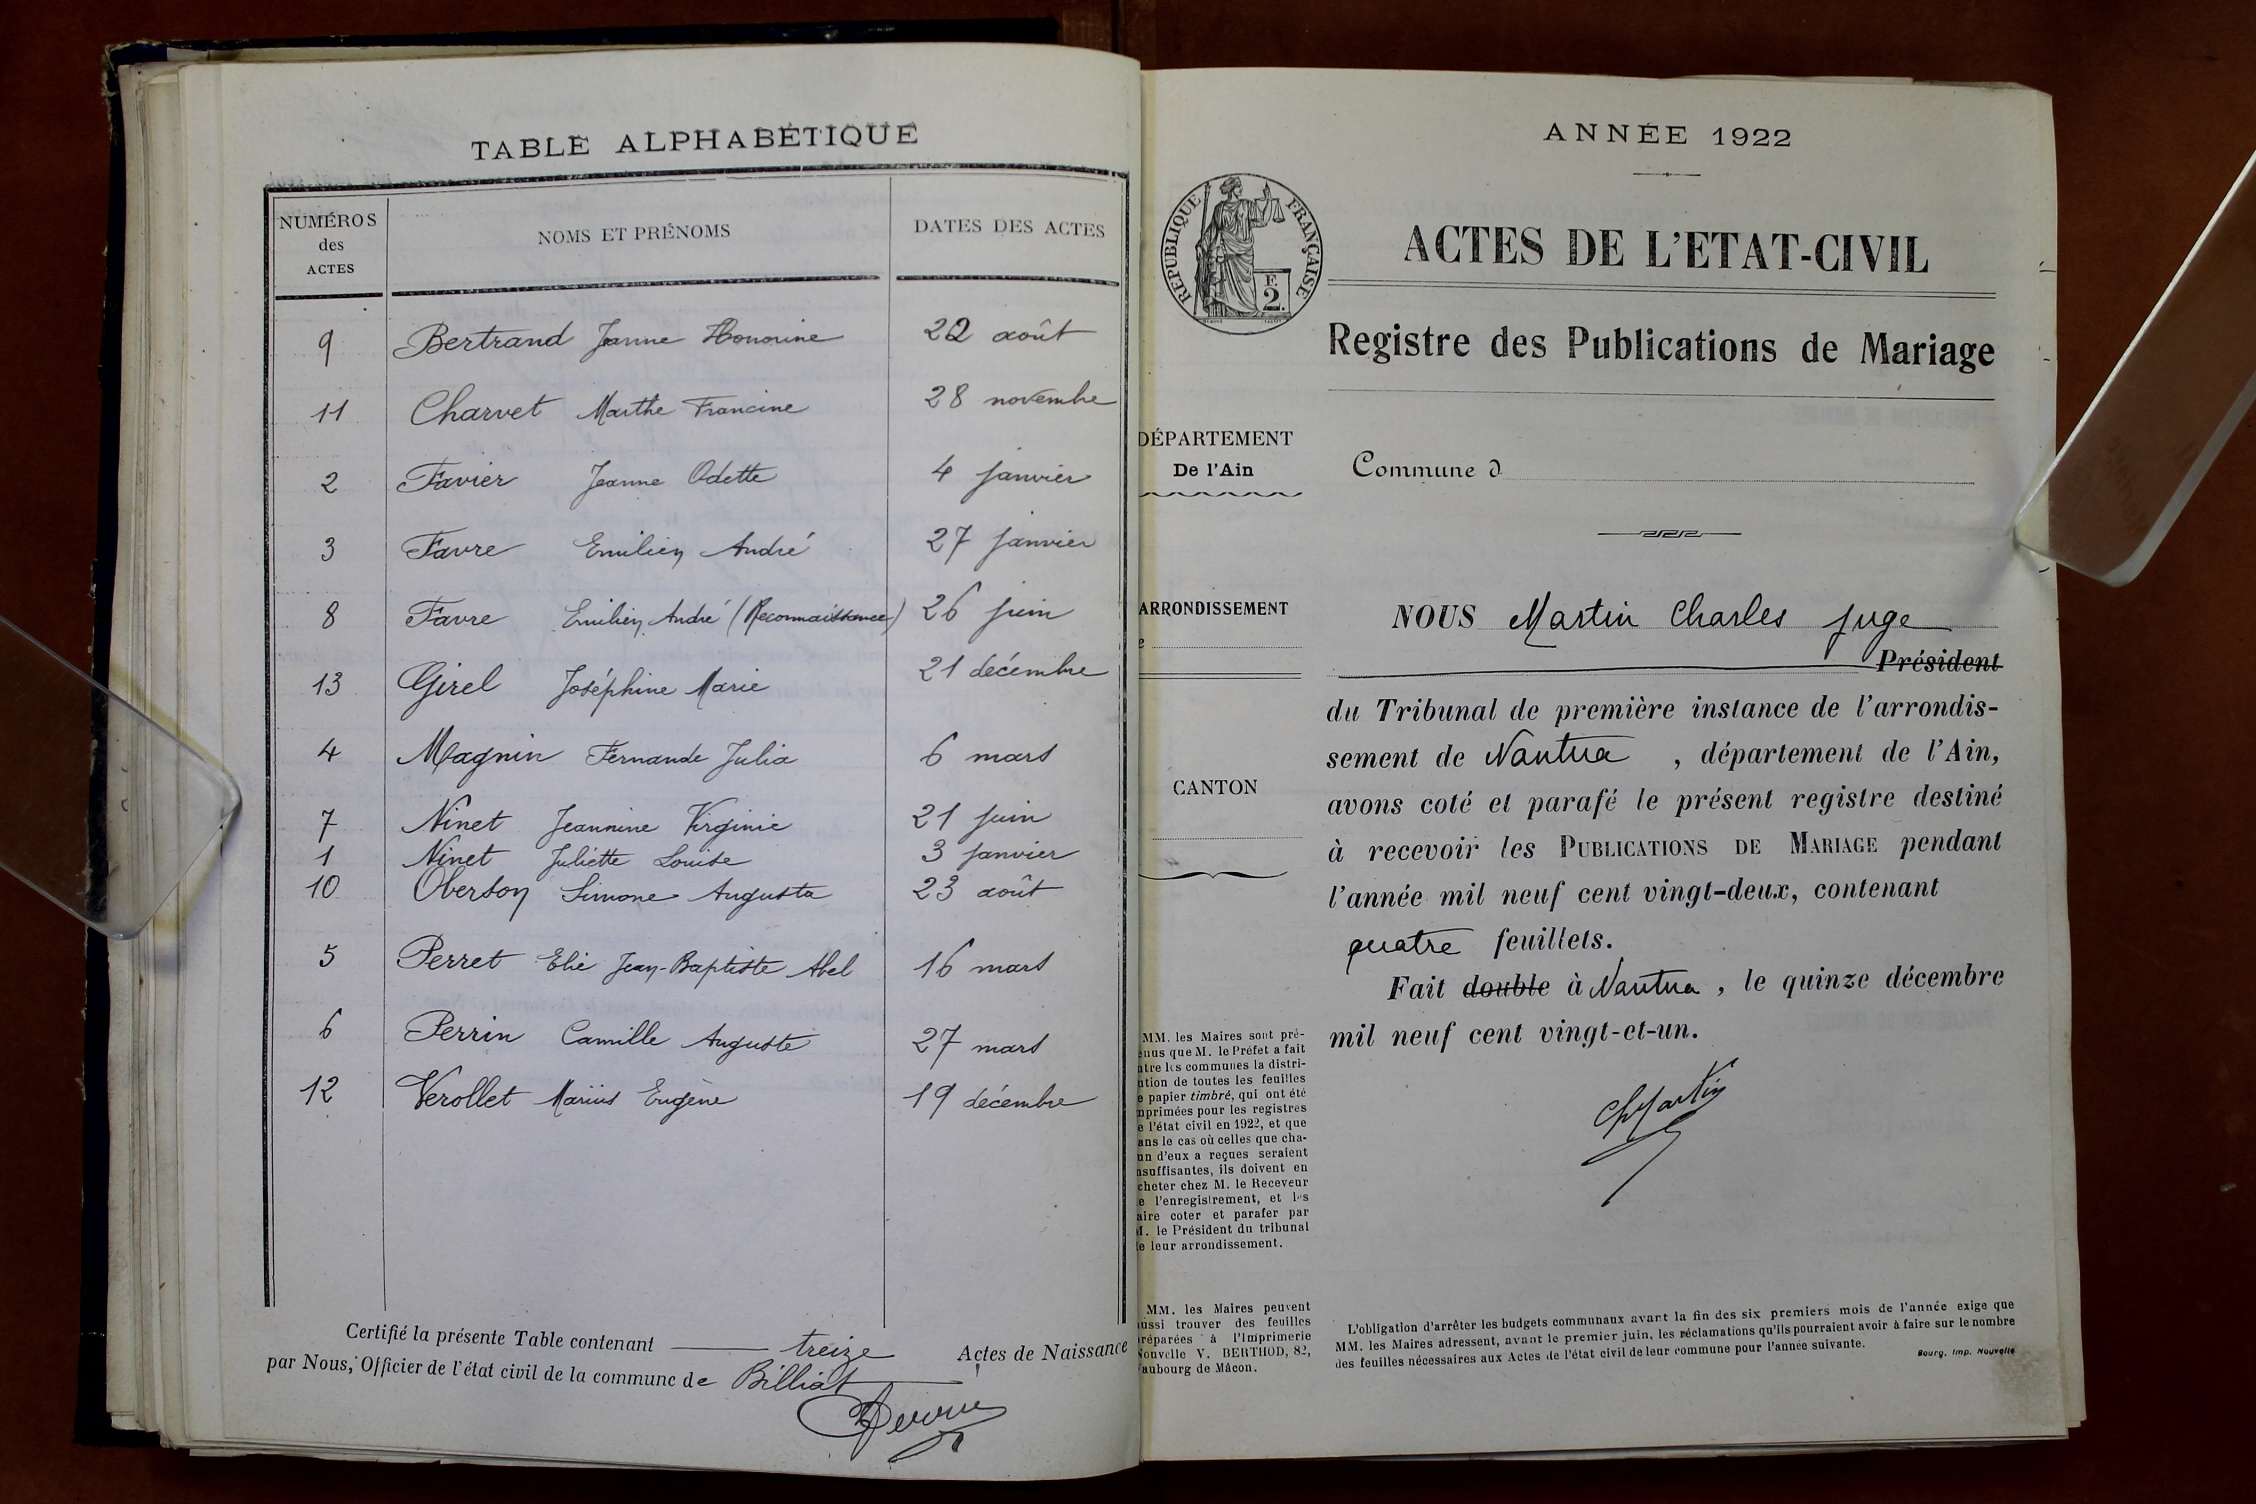 TABLE ALPHABÉTIQUE
NUMÉROS des ACTES NOMS ET PRÉNOMS DATES DES ACTES
9 Bertrand Jeanne Honorine 22 août
11 Charvet Marthe Francine 28 novembre
2 Favier Jeanne Odette 4 janvier
3 Favre Emilien André 27 janvier
8 Favre Emilien André (Reconnaissance) 26 juin
13 Girel Joséphine Marie 21 décembre
4 Magnin Fernande Julia 6 mars
7 Ninet Jeannine Virginie 21 juin
1 Ninet Juliette Louise 3 janvier
10 Oberson Simone Augusta 23 août
5 Perret Elie Jean-Baptiste Abel 16 mars
6 Perrin Camille Auguste 27 mars
12 Verollet Marius Eugène 19 décembre
Certifié la présente Table contenant treize Actes de Naissance
par Nous, Officier de l'état civil de la commune de Billiat
ANNÉE 1922
RÉPUBLIQUE FRANÇAISE
E
2
ACTES DE L'ETAT-CIVIL
Registre des Publications de Mariage
DÉPARTEMENT
De l'Ain
Commune d
ARRONDISSEMENT
CANTON
NOUS Martin Charles juge
Président
du Tribunal de première instance de l'arrondis-
sement de Nantua , département de l'Ain,
avons coté et parafé le présent registre destiné
à recevoir les PUBLICATIONS DE MARIAGE pendant
l'année mil neuf cent vingt-deux, contenant
quatre feuillets.
Fait double à Nantua , le quinze décembre
mil neuf cent vingt-et-un.
ChMartin
MM. les Maires sont pré-
enus que M. le Préfet a fait
ntre les communes la distri-
ution de toutes les feuilles
e papier timbré, qui ont été
mprimées pour les registres
e l'état civil en 1922, et que
ans le cas où celles que cha-
un d'eux a reçues seraient
nsuffisantes, ils doivent en
cheter chez M. le Receveur
e l'enregistrement, et les
aire coter et parafer par
M. le Président du tribunal
de leur arrondissement.
MM. les Maires peuvent
ussi trouver des feuilles
réparées à l'Imprimerie
Nouvelle V. BERTHOD, 82,
aubourg de Mâcon.
L'obligation d'arrêter les budgets communaux avant la fin des six premiers mois de l'année exige que
MM. les Maires adressent, avant le premier juin, les réclamations qu'ils pourraient avoir à faire sur le nombre
des feuilles nécessaires aux Actes de l'état civil de leur commune pour l'année suivante.
Bourg, Imp. Nouvelle